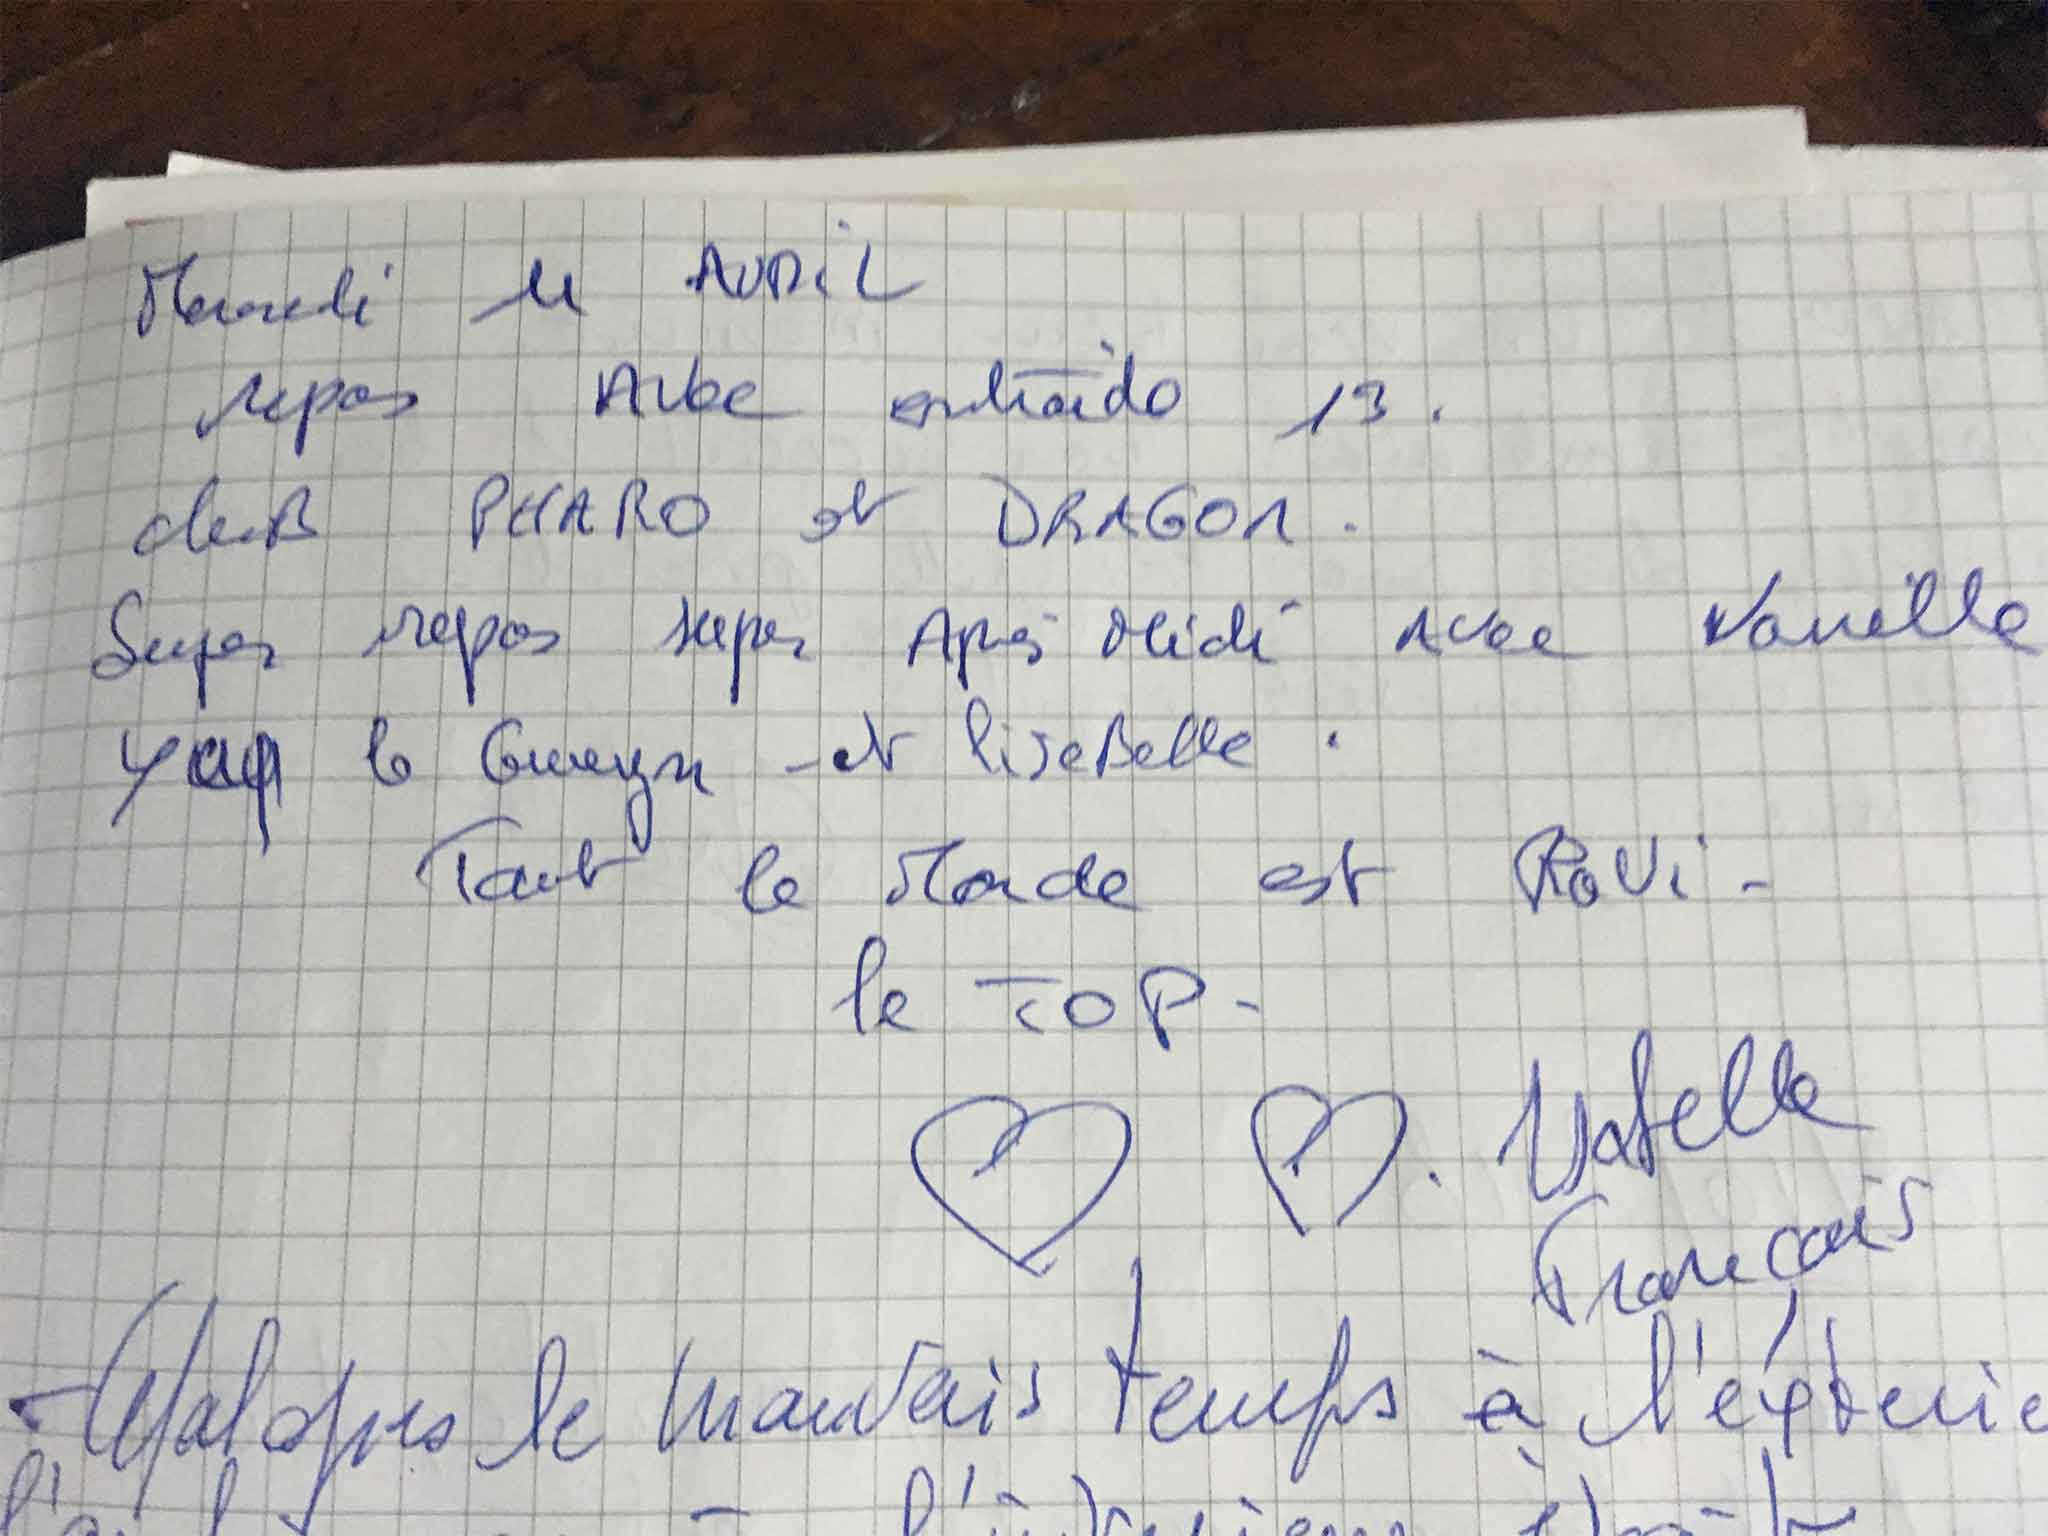 Mardi 11 AVRIL
repas Avec entraido 13.
cluB PHARO et DRAGON.
Super repas super Après Midi Avec
le Gweyn et liseBelle.
Tout le Monde est RaVi -
le TOP -
Français
- Malgrés le mauvais temps à l'éxterie